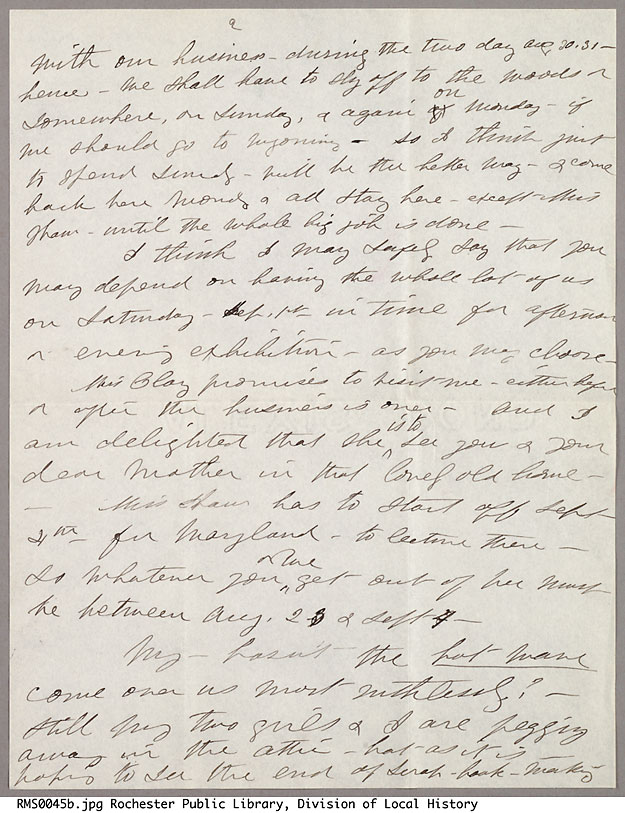 a
with our business - during the two day aug 30.31 -
hence - we shall have to sly off to the woods or
somewhere, on Sunday, & again on Monday - if
we should go to Wyoming - so I think just
to spend Sunday - will be the better way - & come
back here Monday & all stay here - except Miss
Shaw - until the whole big job is done -
I think I may safely say that you
may depend on having the whole lot of us
on Saturday - Sep. 1st in time for afternoon
or evening exhibition - as you may choose -
Miss Clay promises to visit me - either before
or after the business is over - and I
am delighted that she is to see you & your
dear Mother in that lovely old home -
- Miss Shaw has to start off Sept
4th for Maryland - to lecture there -
So whatever you or we get out of her must
be between Aug. 23 & Sept 4 -
My - hasn't the hot wave
come over us most ruthlessly? -
Still my two girls & I are pegging
away in the attic - hot as it is
hoping to see the end of scrap - book - making
RMS0045b.jpg Rochester Public Library, Division of Local History